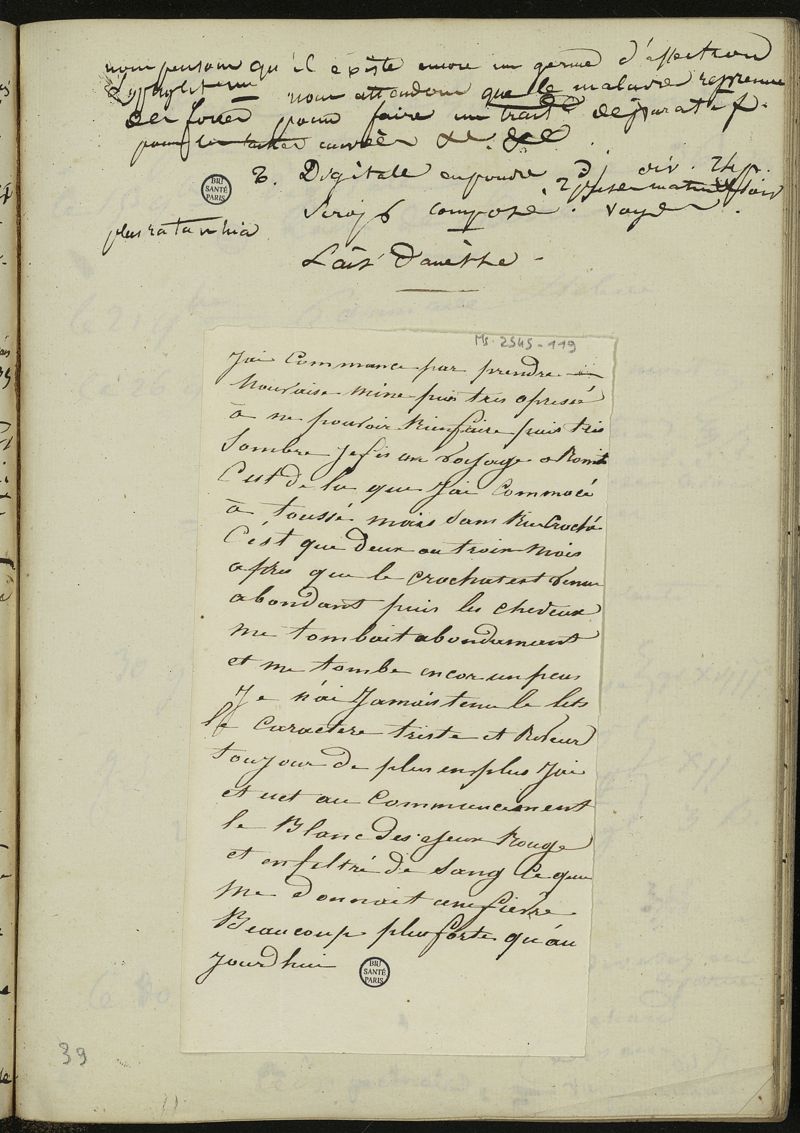 nous pensons qu'il existe encore un germe d'affection
syphilit nous attendons que le malade reprenne
des forces pour faire un trait dépuratif.
BIU
SANTÉ
PARIS
Digitale en poudre div. 24 p.
Sirop composé. voyez
plus ratanhia
Lait d'anesse
Ms. 2345-119
Jai Commance par prendre
Mauvaise mine puis tres opressé
a ne pouvoir Rien faire puis tres
Sombre Je fis un voyage a
C'est de la que Jai Commacé
a toussé mais sans Rien Craché
C'ést que deux ou trois Mois
apres que le crachat est venue
abondant puis les cheveux
me tombait abondament
et me tombe encor un peus
Je n'ai Jamais tenu le lits
le Caractere triste et Reveur
toujour de plus en plus Jai
et uet au Commencement
le Blanc des yeux Rouge
et enfeltré de Sang Ce que
me donnait une fievre
Beaucoup plus forte qu'au
Jourdhui
BIU
SANTÉ
PARIS
39